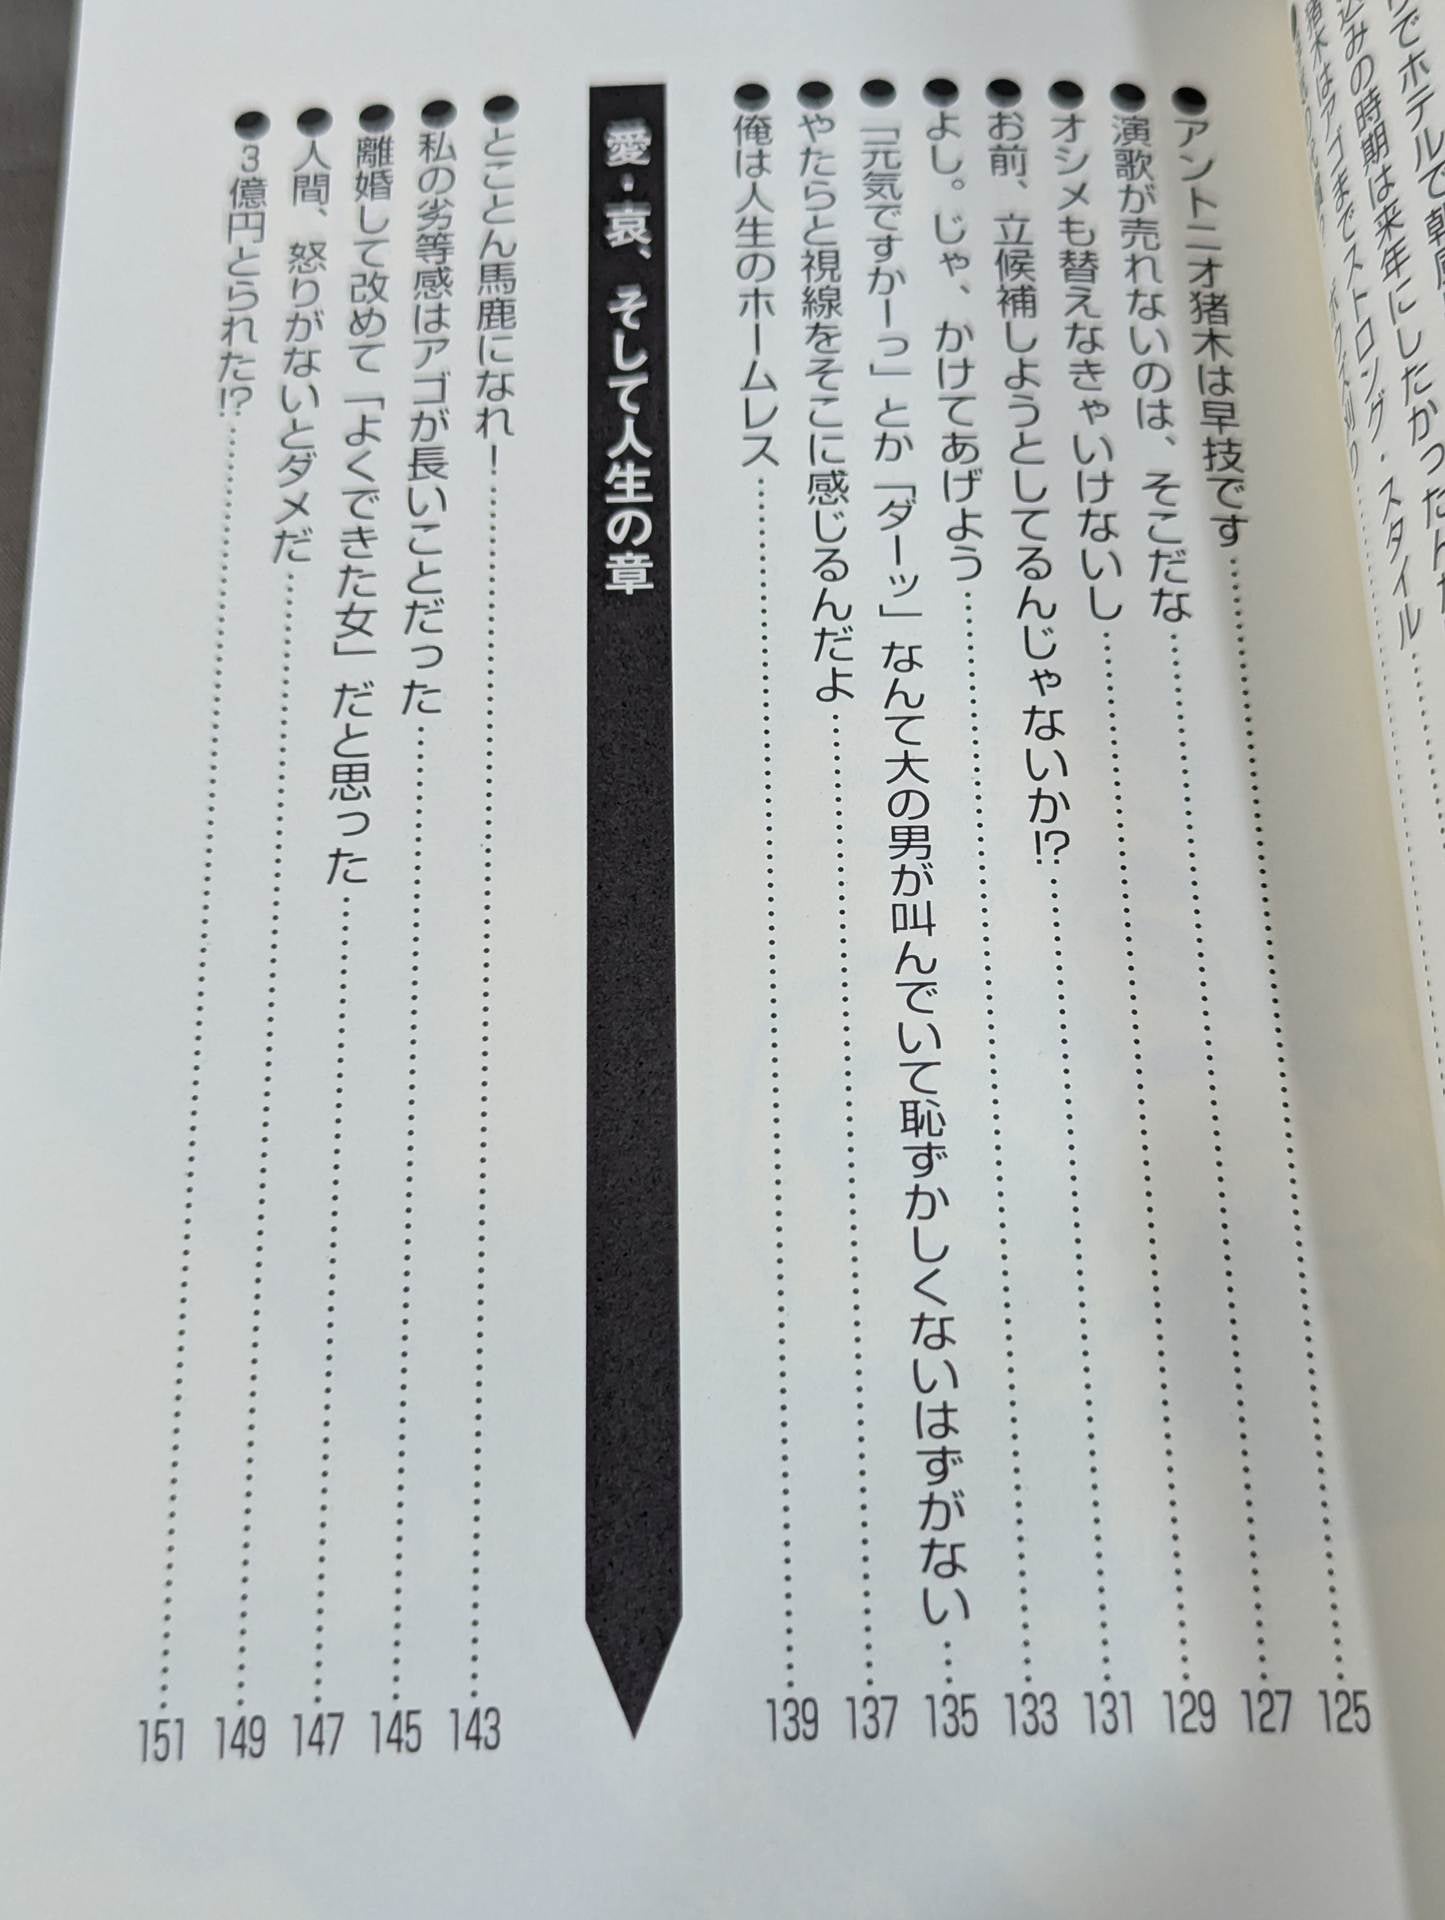 りでホテルで朝風
込みの時期は来年にしたかったんだ
猪木はアゴまでストロング・スタイル
●アントニオ猪木は早技です……125
●演歌が売れないのは、そこだな……127
●オシメも替えなきゃいけないし……129
●お前、立候補しようとしてるんじゃないか!?……131
●よし。じゃ、かけてあげよう……133
●「元気ですかーっ」とか「ダーッ」なんて大の男が叫んでいて恥ずかしくないはずがない……135
●やたらと視線をそこに感じるんだよ……137
●俺は人生のホームレス……139
愛・哀、そして人生の章
●とことん馬鹿になれ！……143
●私の劣等感はアゴが長いことだった……145
●離婚して改めて「よくできた女」だと思った……147
●人間、怒りがないとダメだ……149
●3億円とられた!?……151